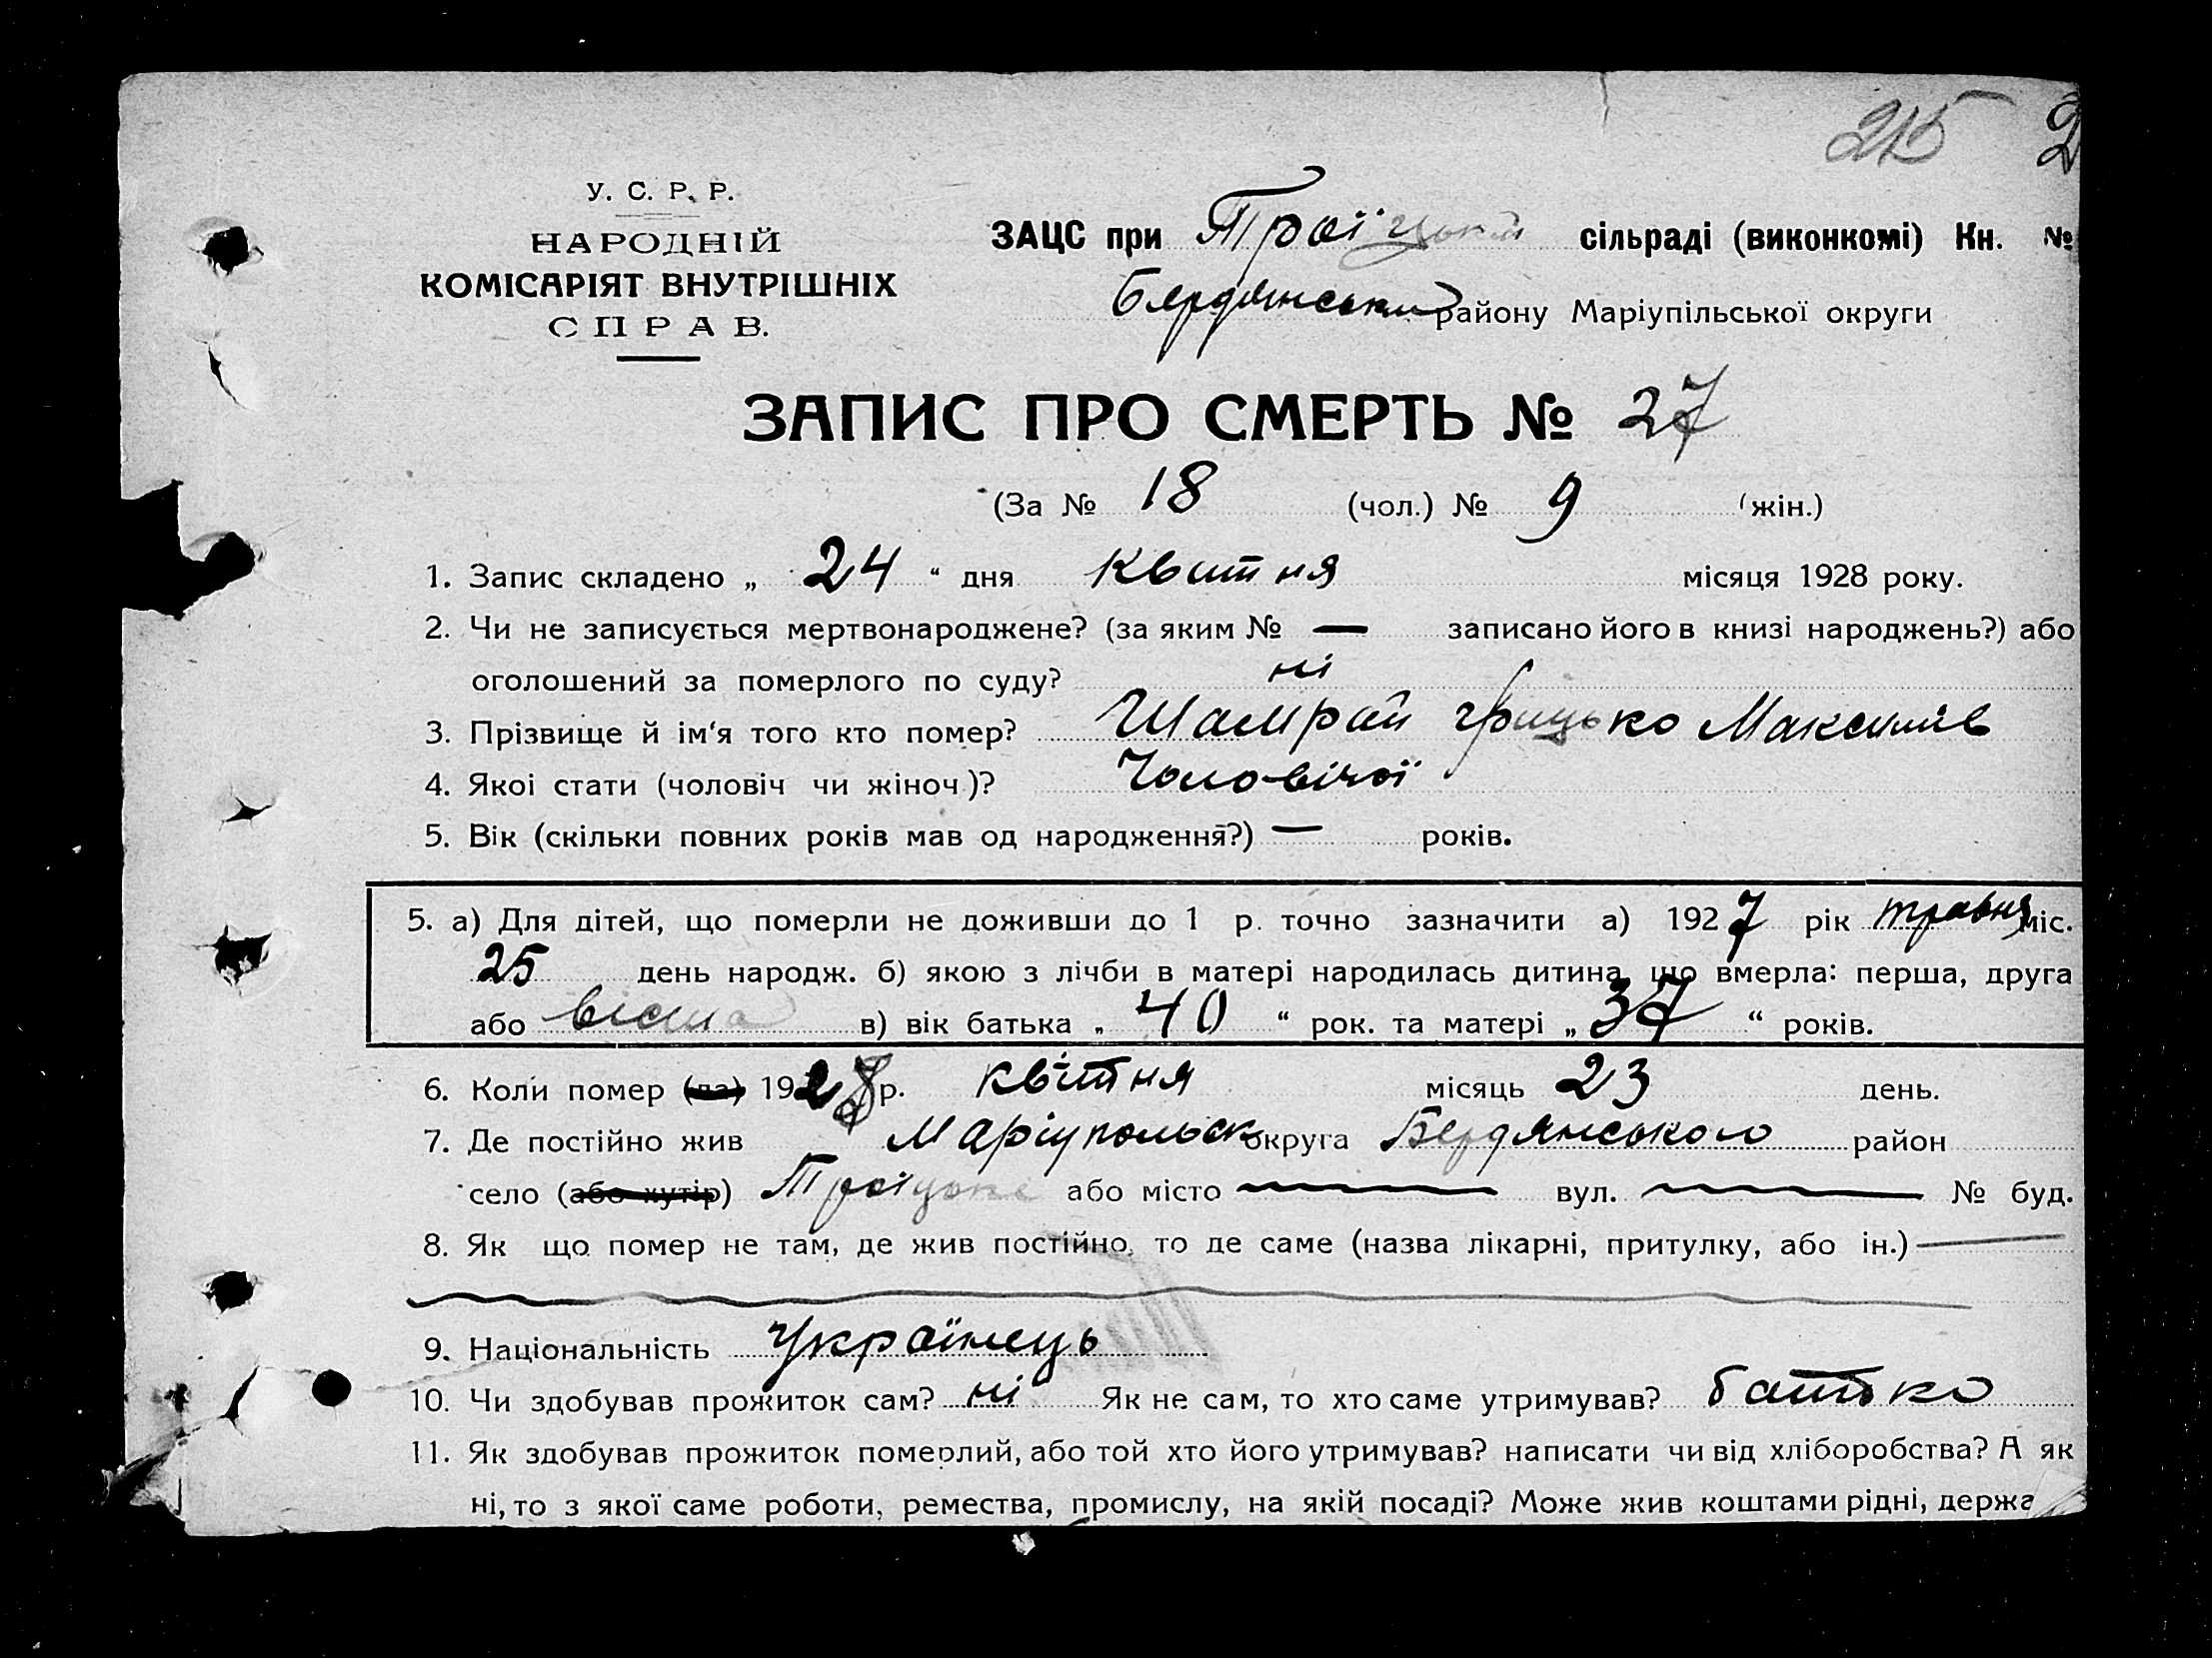 215 2
У. С. Р. Р.
НАРОДНІЙ
КОМІСАРІЯТ ВНУТРІШНІХ
СПРАВ.
ЗАЦС при Троїцькій сільраді (виконкомі) Кн. №
Бердянськ району Маріупільської округи
ЗАПИС ПРО СМЕРТЬ № 27
(За № 18 (чол.) № 9 (жін.)
1. Запис складено „ 24 “ дня Квитня місяця 1928 року.
2. Чи не записується мертвонароджене? (за яким № — записано його в книзі народжень?) або
оголошений за померлого по суду? ні
3. Прізвище й ім'я того кто помер? Шамрай Грицько Максимів
4. Якоі стати (чоловіч чи жіноч.)? Чоловічої
5. Вік (скільки повних років мав од народження?) — років.
5. а) Для дітей, що померли не доживши до 1 р. точно зазначити а) 1927 рік травня міс.
25 день народж. б) якою з лічби в матері народилась дитина, що вмерла: перша, друга
або восьма в) вік батька „ 40 “ рок. та матері „ 37 “ років.
6. Коли помер (ла) 1928 р. квітня місяць 23 день.
7. Де постійно жив Маріупольск округа Бердянського район
село (або хутір) Троїцьке або місто — вул. — № буд.
8. Як що помер не там, де жив постійно, то де саме (назва лікарні, притулку, або ін.) —
9. Національність Українець
10. Чи здобував прожиток сам? ні Як не сам, то хто саме утримував? батько
11. Як здобував прожиток померлий, або той хто його утримував? написати чи від хліборобства? А як
ні, то з якої саме роботи, ремества, промислу, на якій посаді? Може жив коштами рідні, держа